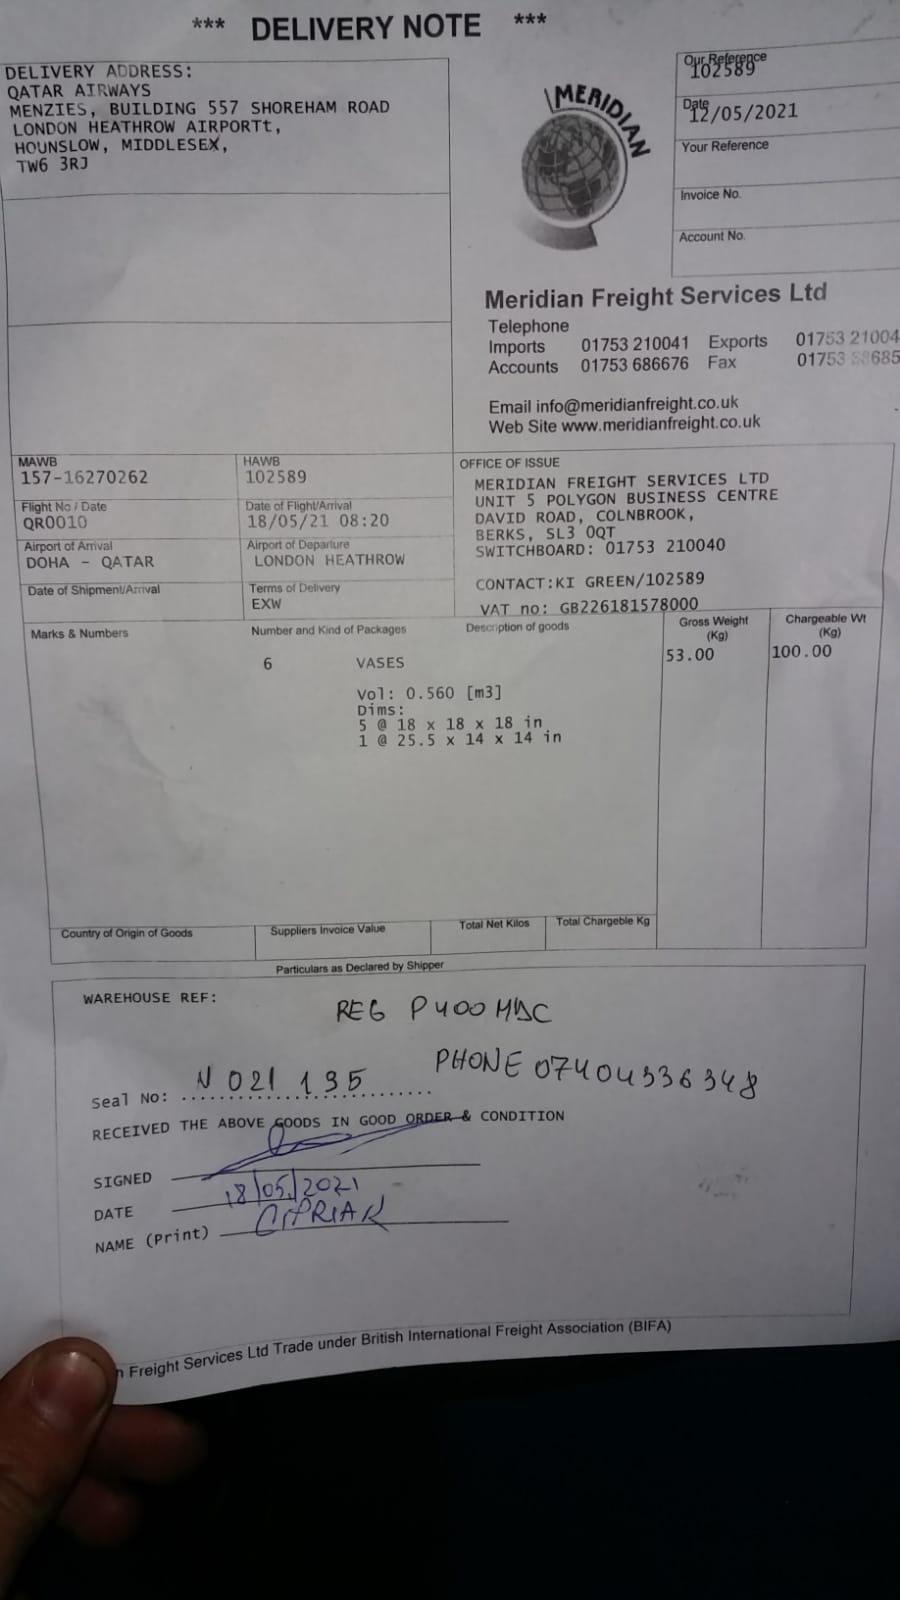 *** DELIVERY NOTE ***
DELIVERY ADDRESS:
QATAR AIRWAYS
MENZIES, BUILDING 557 SHOREHAM ROAD
LONDON HEATHROW AIRPORTt,
HOUNSLOW, MIDDLESEX,
TW6 3RJ
MERIDIAN
Our Reference
102589
Date
12/05/2021
Your Reference
Invoice No.
Account No.
Meridian Freight Services Ltd
Telephone
Imports 01753 210041 Exports 01753 21004
Accounts 01753 686676 Fax 01753
Email info@meridianfreight.co.uk
Web Site www.meridianfreight.co.uk
MAWB
157-16270262
HAWB
102589
Flight No / Date
QR0010
Date of Flight/Arrival
18/05/21 08:20
Airport of Arrival
DOHA - QATAR
Airport of Departure
LONDON HEATHROW
Date of Shipment/Arrival
Terms of Delivery
EXW
OFFICE OF ISSUE
MERIDIAN FREIGHT SERVICES LTD
UNIT 5 POLYGON BUSINESS CENTRE
DAVID ROAD, COLNBROOK,
BERKS, SL3 0QT
SWITCHBOARD: 01753 210040
CONTACT:KI GREEN/102589
VAT no: GB226181578000
Marks & Numbers
Number and Kind of Packages
Description of goods
Gross Weight
(Kg)
Chargeable Wt
(Kg)
6 VASES
53.00
100.00
Vol: 0.560 [m3]
Dims:
5 @ 18 x 18 x 18 in
1 @ 25.5 x 14 x 14 in
Country of Origin of Goods
Suppliers Invoice Value
Total Net Kilos
Total Chargeble Kg
Particulars as Declared by Shipper
WAREHOUSE REF:
REG P400MDC
PHONE 07404336348
Seal No: N 021 195
RECEIVED THE ABOVE GOODS IN GOOD ORDER & CONDITION
SIGNED
DATE 18/05/2021
NAME (Print) CIPRIAN
n Freight Services Ltd Trade under British International Freight Association (BIFA)